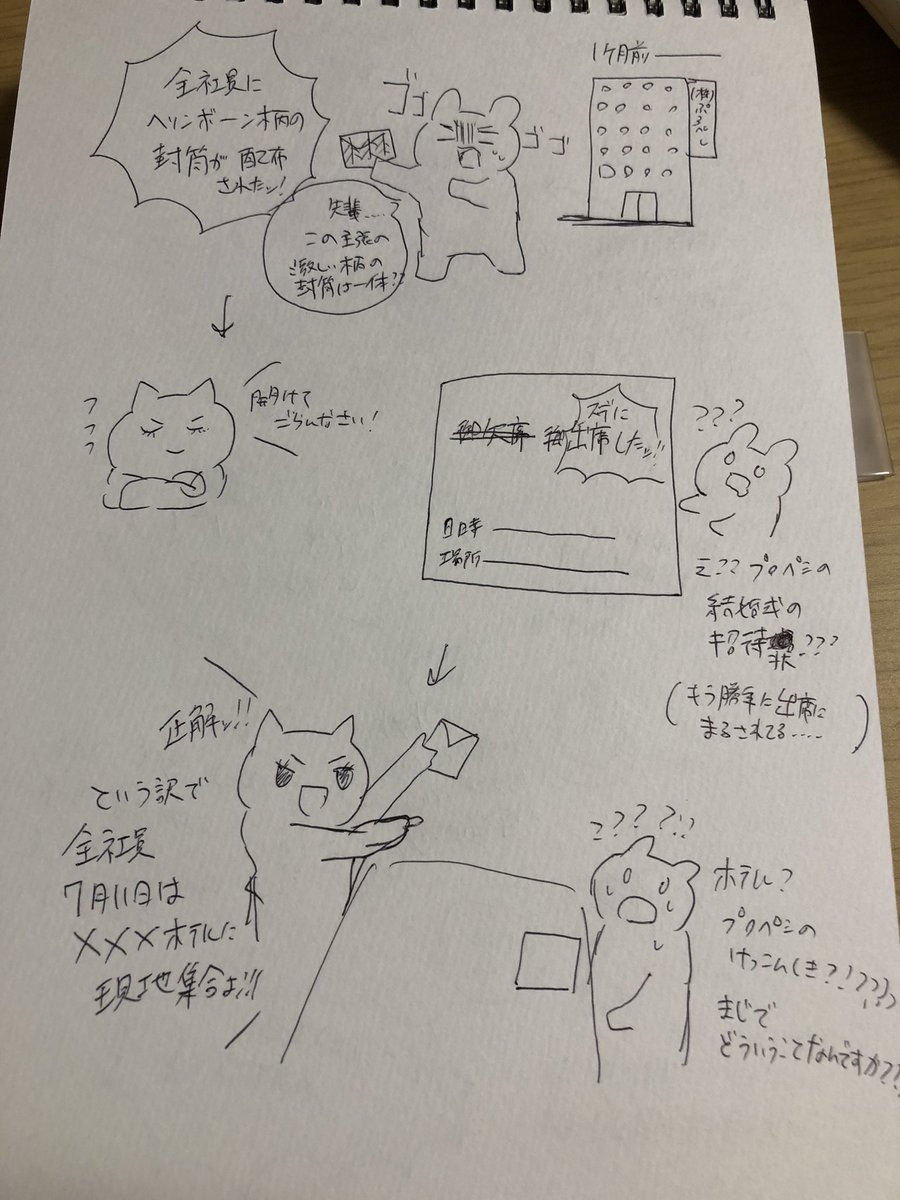 1ヶ月前
(株)ぷろぺし
ゴゴゴ
ゴゴ
全社員に
ヘリンボーン柄の
封筒が配布
されたッ!
先輩……
この主張の
激しい柄の
封筒は一体??
フフフ
開けて
ごらんなさい!
御欠席 御出席
スデに
したッ!!
日時
場所
???
え??プロペシの
結婚式の
招待状???
(もう勝手に出席に
まるされてる……)
正解ッ!!
という訳で
全社員
7月11日は
×××ホテルに
現地集合よ!!
????!?
ホテル?
プロペシの
けっこんしき?!???!?
まじで
どういうことなんですか??